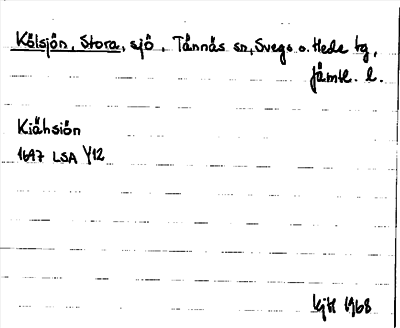 Kölsjön, Stora, sjö, Tännäs sn, Svegs o. Hede tg,
Jämtl. l.
Kiähsiön
1697 LSA Y12
kjtl 1968